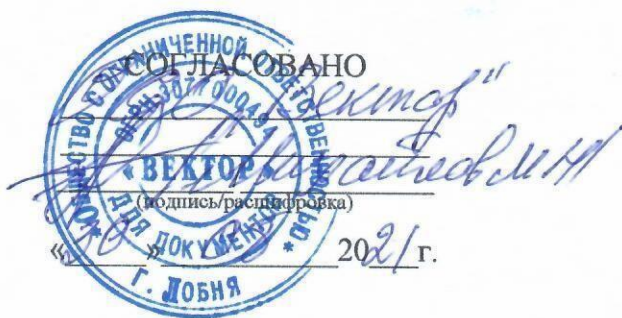 СОГЛАСОВАНО
"Вектор"
(подпись/расшифровка)
«30» 2021 г.
ОБЩЕСТВО С ОГРАНИЧЕННОЙ ОТВЕТСТВЕННОСТЬЮ
«ВЕКТОР»
ДЛЯ ДОКУМЕНТОВ
Г. ЛОБНЯ